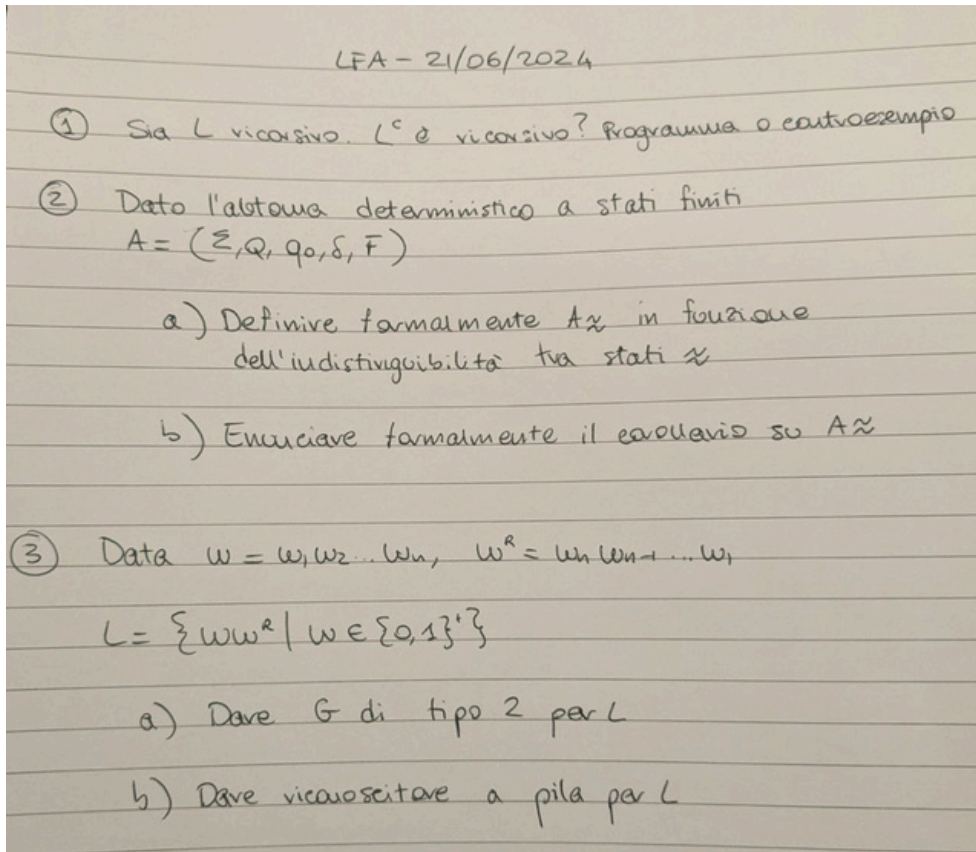 LFA - 21/06/2024
① Sia L ricorsivo. Lᶜ è ricorsivo? Programma o controesempio
② Dato l'automa deterministico a stati finiti
A = (Σ, Q, q₀, δ, F)
a) Definire formalmente A≈ in funzione
dell'indistinguibilità tra stati ≈
b) Enunciare formalmente il corollario su A≈
③ Data w = w₁w₂...wₙ, wᴿ = wₙwₙ₋₁...w₁
L = {wwᴿ | w ∈ {0,1}⁺}
a) Dare G di tipo 2 per L
b) Dare riconoscitore a pila per L